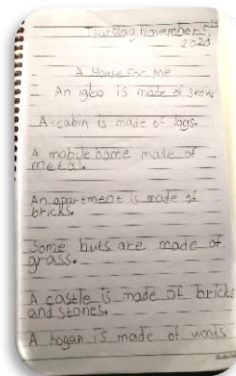 Thursday, November 5,
2020
A House For Me
An igloo is made of snow.
A cabin is made of logs.
A mobile home made of
metal.
An apartment is made of
bricks.
Some huts are made of
grass.
A castle is made of bricks
and stones.
A hogan is made of woods